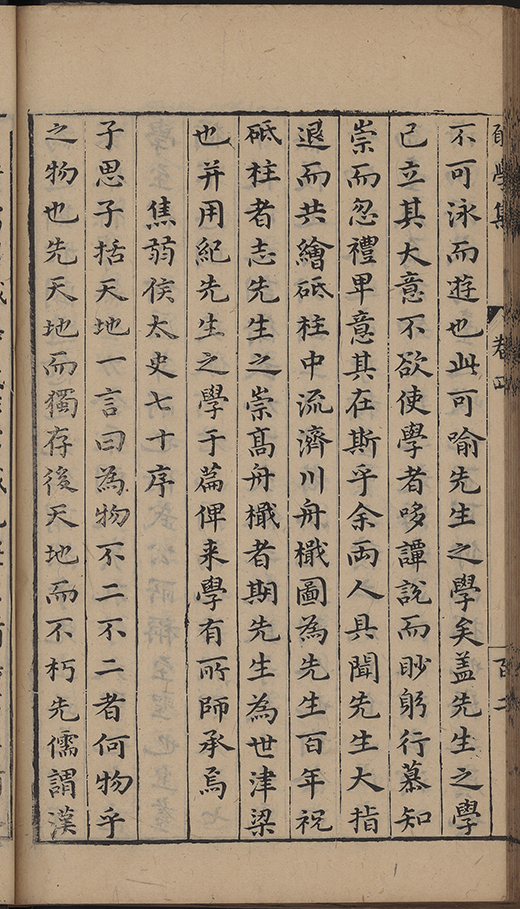 學集 卷四 百二
不可泳而遊也此可喻先生之學矣盖先生之學
已立其大意不欲使學者哆譚說而眇躬行慕知
崇而忽禮卑意其在斯乎余両人具聞先生大指
退而共繪砥柱中流濟川舟檝圖為先生百年祝
砥柱者志先生之崇髙舟檝者期先生為世津梁
也并用紀先生之學于篇俾来學有所師承焉
焦弱侯太史七十序
子思子括天地一言曰為物不二不二者何物乎
之物也先天地而獨存後天地而不朽先儒謂漢